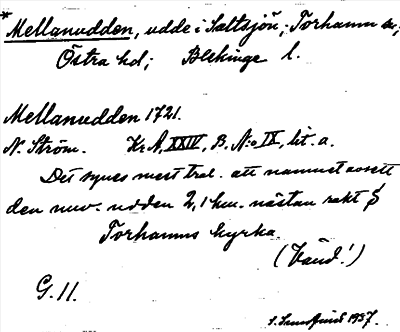 * Mellanudden, udde i Saltsjön; Torhamn sn;
Östra hd; Blekinge l.
Mellanudden 1721.
N. Ström. Kr. A, XXIV, B. N:o IX, lit. a.
Det synes mest trol. att namnet avsett
den nuv. udden 2,1 km. nästan rakt S
Torhamns kyrka
(Vänd!)
G. 11.
1937.